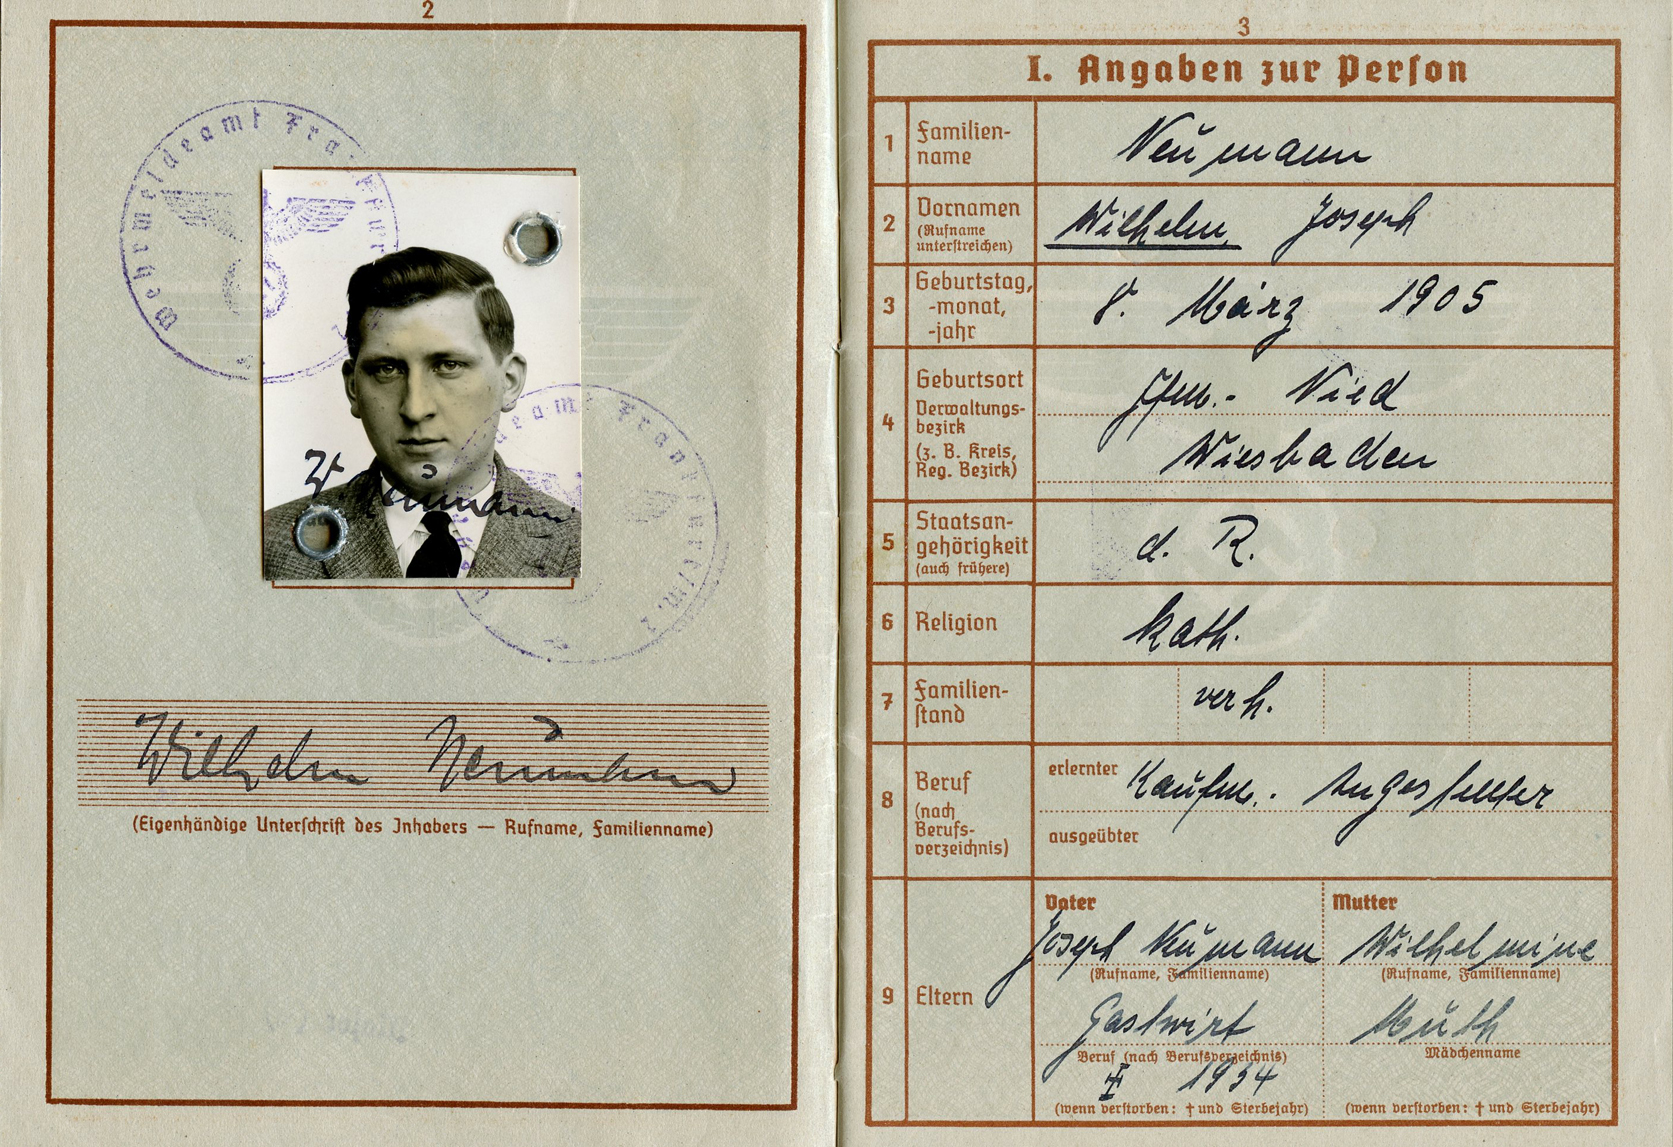 2
Wehrmeldeamt Frankfurt
W Neumann
deamt Frankfurt/M. 1
Wilhelm Neumann
(Eigenhändige Unterschrift des Inhabers — Rufname, Familienname)
3
I. Angaben zur Person
1 Familien-
name
Neumann
2 Vornamen
(Rufname
unterstreichen)
Wilhelm Joseph
3 Geburtstag,
-monat,
-jahr
8. März 1905
4 Geburtsort
Verwaltungs-
bezirk
(z. B. Kreis,
Reg. Bezirk)
Ffm.- Nied
Wiesbaden
5 Staatsan-
gehörigkeit
(auch frühere)
d. R.
6 Religion
kath.
7 Familien-
stand
verh.
8 Beruf
(nach
Berufs-
verzeichnis)
erlernter Kaufm. Angestellter
ausgeübter
9 Eltern
Vater
Joseph Neumann
(Rufname, Familienname)
Gastwirt
Beruf (nach Berufsverzeichnis)
† 1934
(wenn verstorben: † und Sterbejahr)
Mutter
Wilhelmine
(Rufname, Familienname)
Muth
Mädchenname
(wenn verstorben: † und Sterbejahr)